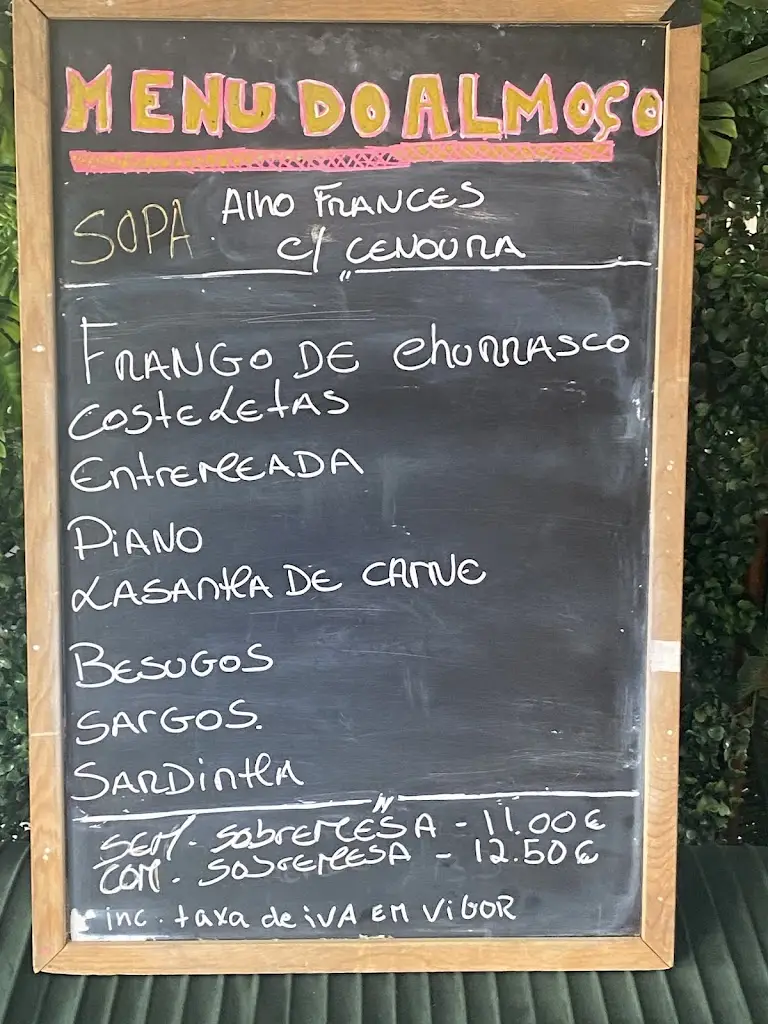 MENU DO ALMOÇO
SOPA Alho FRANCES
c/ CENOURA
FRANGO DE ChURRASCO
COSTELETAS
ENtrEMEADA
PiANO
LASANhA DE CARNE
BESUGOS
SARGOS.
SARDinhA
SEM. SobrEMESA - 11.00€
COM. SobrEMESA - 12.50€
inc. taxa de iVA EM ViGOR